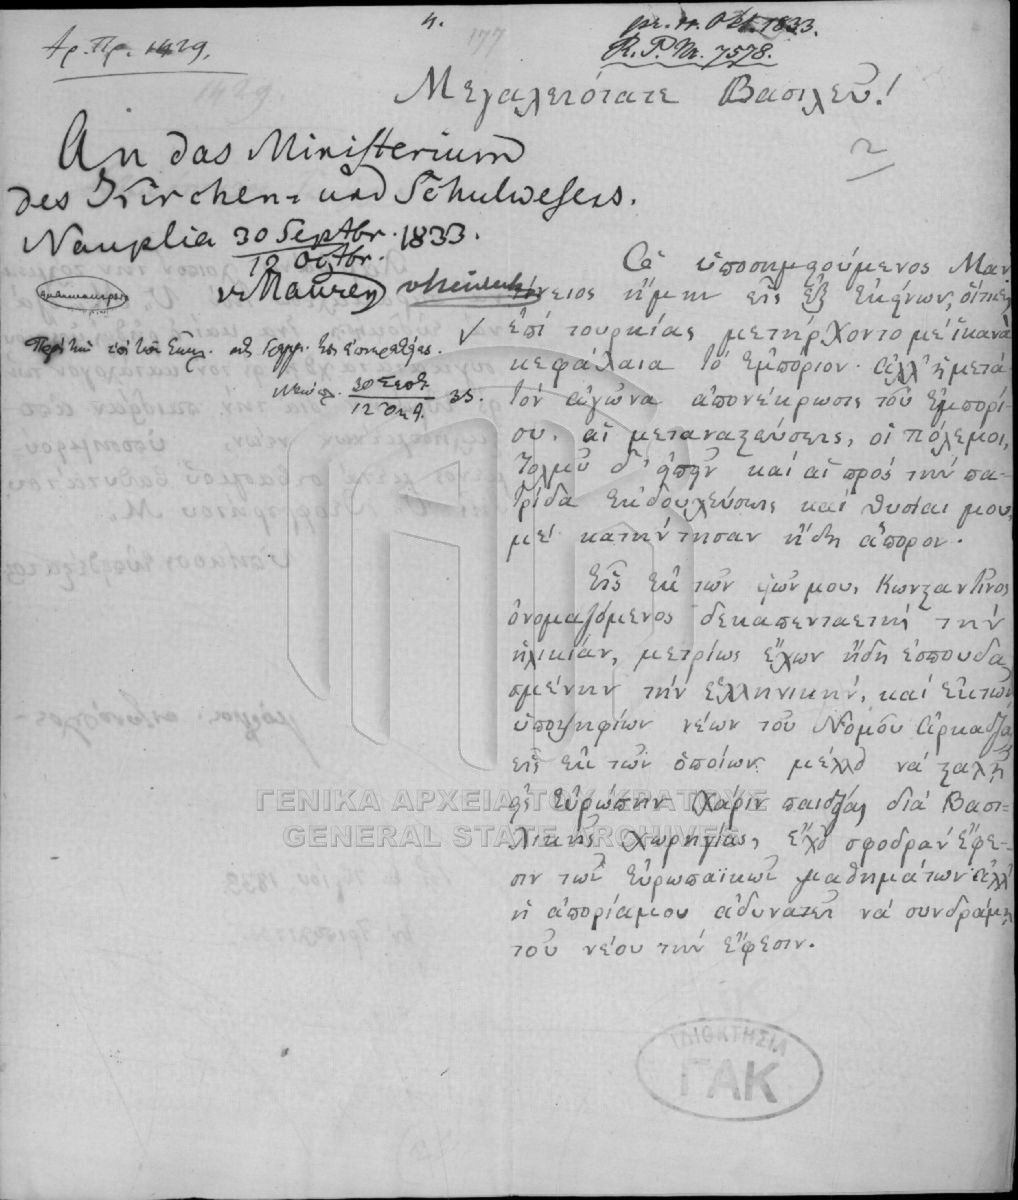 4.
Αρ. Πρ. 1429.
177
pr. 11. Okt. 1833.
R. P. Nr. 7578.
1429.
Μεγαλειότατε Βασιλεῦ!
2
An das Ministerium
des Kirchen- und Schulwesens.
Nauplia 30 Septbr. 1833.
12 Octbr.
v Maurer
Περὶ τῶν ἐπὶ τῶν Ἐκκλ.
30 Σεπτ.
12 Ὀκτ. 33.
Ὁ ὑποσημειούμενος Μαν
τίνειος ἤμην εἷς ἐξ ἐκείνων, οἵτινες
ἐπί τουρκίας μετήρχοντο μέ ἱκανά
κεφάλαια τό ἐμπόριον. ἀλλ' ἡ μετά
τόν ἀγῶνα ἀπονέκρωσις τοῦ ἐμπορί-
ου, αἱ μεταναστεύσεις, οἱ πόλεμοι,
τολμῶ δ' εἰπεῖν καί αἱ πρός τήν πα-
τρίδα ἐκδουλεύσεις καί θυσίαι μου,
μέ κατήντησαν ἤδη ἄπορον.
Εἷς ἐκ τῶν υἱῶν μου, Κωνσταντῖνος
ὀνομαζόμενος δεκαπενταετής τήν
ἡλικίαν, μετρίως ἔχων ἤδη ἐσπουδα
σμένην τήν ἑλληνικήν, καί εἷς τῶν
ὑποψηφίων νέων τοῦ Νομοῦ Ἀρκαδίας
εἷς ἐκ τῶν ὁποίων μέλλει νά σταλῇ
εἰς Εὐρώπην χάριν παιδείας διά Βασι-
λικῆς χωρηγίας, ἔχει σφοδράν ἔφε-
σιν τῶν Εὐρωπαϊκῶν μαθημάτων ἀλλ'
ἡ ἀπορία μου ἀδυνατεῖ νά συνδράμῃ
τοῦ νέου τήν ἔφεσιν.
ΓΕΝΙΚΑ ΑΡΧΕΙΑ ΤΟΥ ΚΡΑΤΟΥΣ
GENERAL STATE ARCHIVES
ΙΔΙΟΚΤΗΣΙΑ
ΓΑΚ